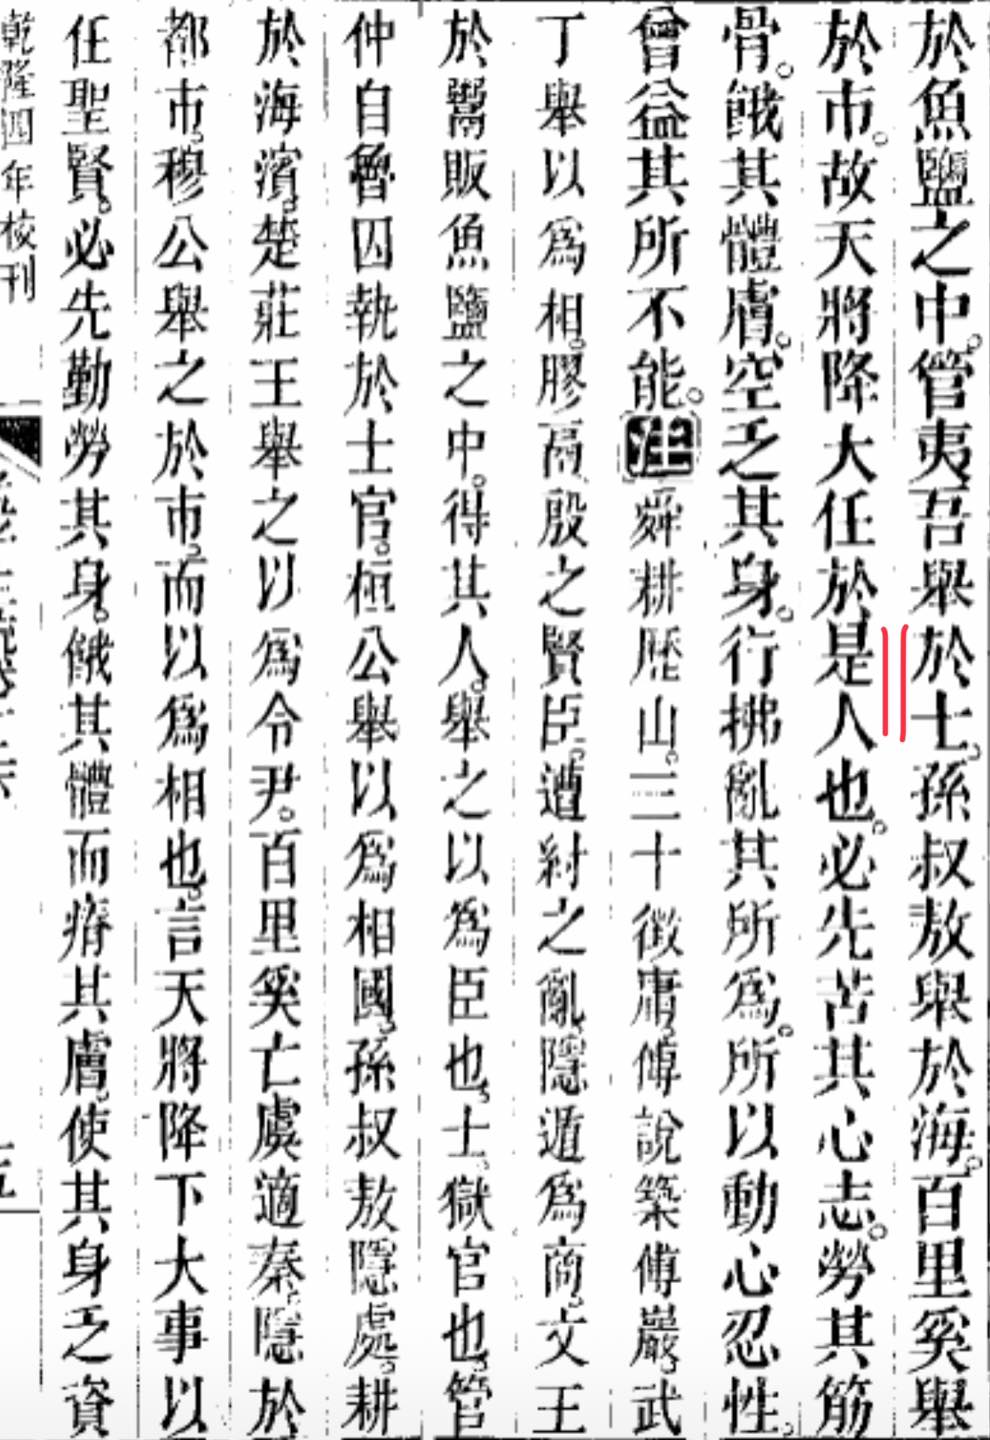 於魚鹽之中。管夷吾舉於士。孫叔敖舉於海。百里奚舉
於市。故天將降大任於是人也。必先苦其心志。勞其筋
骨。餓其體膚。空乏其身。行拂亂其所爲。所以動心忍性。
曾益其所不能。注舜耕歷山。三十徵庸。傅說築傅巖。武
丁舉以爲相。膠鬲殷之賢臣。遭紂之亂。隱遁爲商。文王
於鬻販魚鹽之中。得其人。舉之以爲臣也。士。獄官也。管
仲自魯囚執於士官。桓公舉以爲相國。孫叔敖隱處。耕
於海濱。楚莊王舉之以爲令尹。百里奚亡虞適秦。隱於
都市。穆公舉之於市。而以爲相也。言天將降下大事以
任聖賢。必先勤勞其身。餓其體而瘠其膚。使其身乏資
乾隆四年校刊